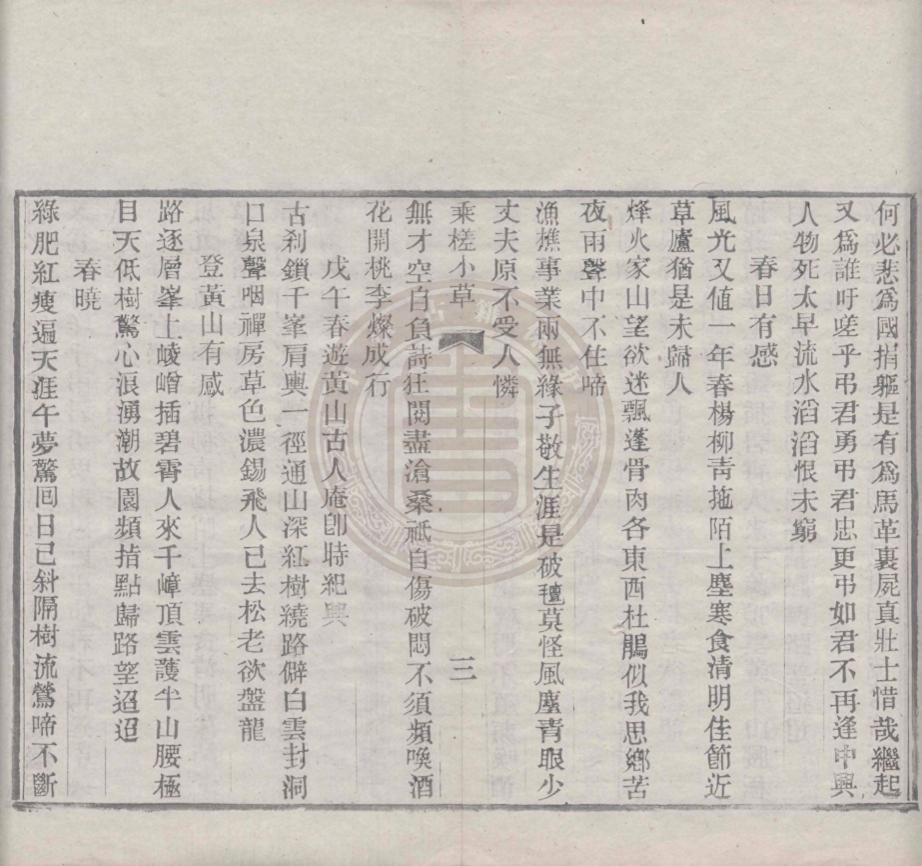 何必悲爲國捐軀是有爲馬革裏屍真壯士惜哉繼起
又爲誰吁嗟乎弔君勇弔君忠更弔如君不再逢中興
人物死太早流水滔滔恨未窮
春日有感
風光又值一年春楊柳靑拖陌上塵寒食清明佳節近
草廬猶是未歸人
烽火家山望欲迷飄蓬骨肉各東西杜鵑似我思鄉苦
夜雨聲中不住啼
漁樵事業兩無緣子敬生涯是破氊莫怪風塵靑眼少
丈夫原不受人憐
乘槎小草 三
無才空自負詩狂閱盡滄桑祇自傷破悶不須頻喚酒
花開桃李燦成行
戊午春遊黃山古人庵卽時紀興
古刹鎖千峯肩輿一徑通山深紅樹繞路僻白雲封洞
口泉聲咽禪房草色濃錫飛人已去松老欲盤龍
登黃山有感
路逐層峯上崚嶒插碧霄人來千嶂頂雲護半山腰極
目天低樹驚心浪湧潮故園頻指點歸路望迢迢
春曉
綠肥紅瘦遍天涯午夢驚回日已斜隔樹流鶯啼不斷